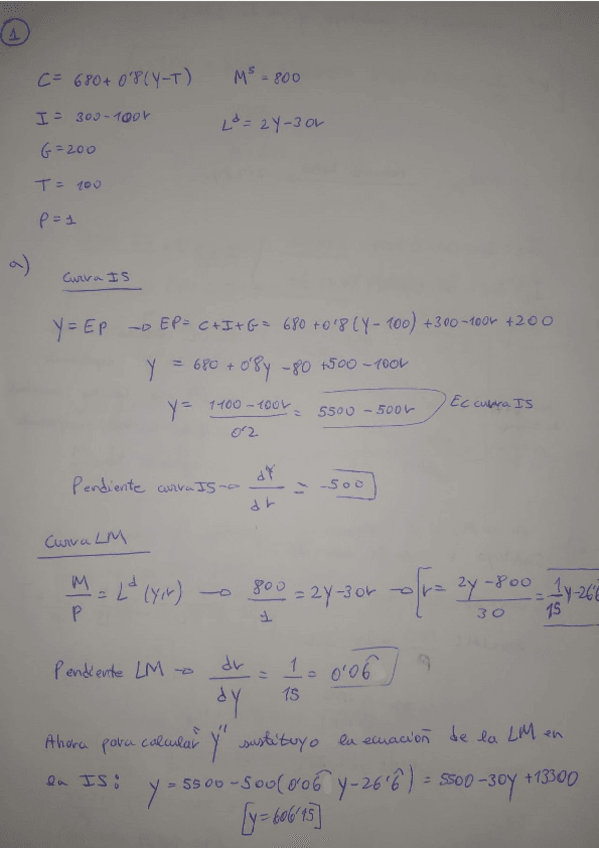 1
C = 680 + 0'8 (Y-T) Mˢ = 800
I = 300 - 100r Lᵈ = 2Y - 30r
G = 200
T = 100
P = 1
a) Curva IS
Y = EP → EP = C+I+G = 680 + 0'8 (Y - 100) + 300 - 100r + 200
Y = 680 + 0'8y - 80 + 500 - 100r
Y = 1100 - 100r / 0'2 = 5500 - 500r Ec curva IS
Pendiente curva IS → dY/dr = -500
Curva LM
M/P = Lᵈ (Y,r) → 800/1 = 2Y - 30r → r = 2Y - 800 / 30 = 1/15 Y - 26'6
Pendiente LM → dr/dY = 1/15 = 0'06̂
Ahora para calcular "Y" sustituyo la ecuación de la LM en
la IS: Y = 5500 - 500 (0'06̂ Y - 26'6̂) = 5500 - 30Y + 13300
[Y = 606'15]